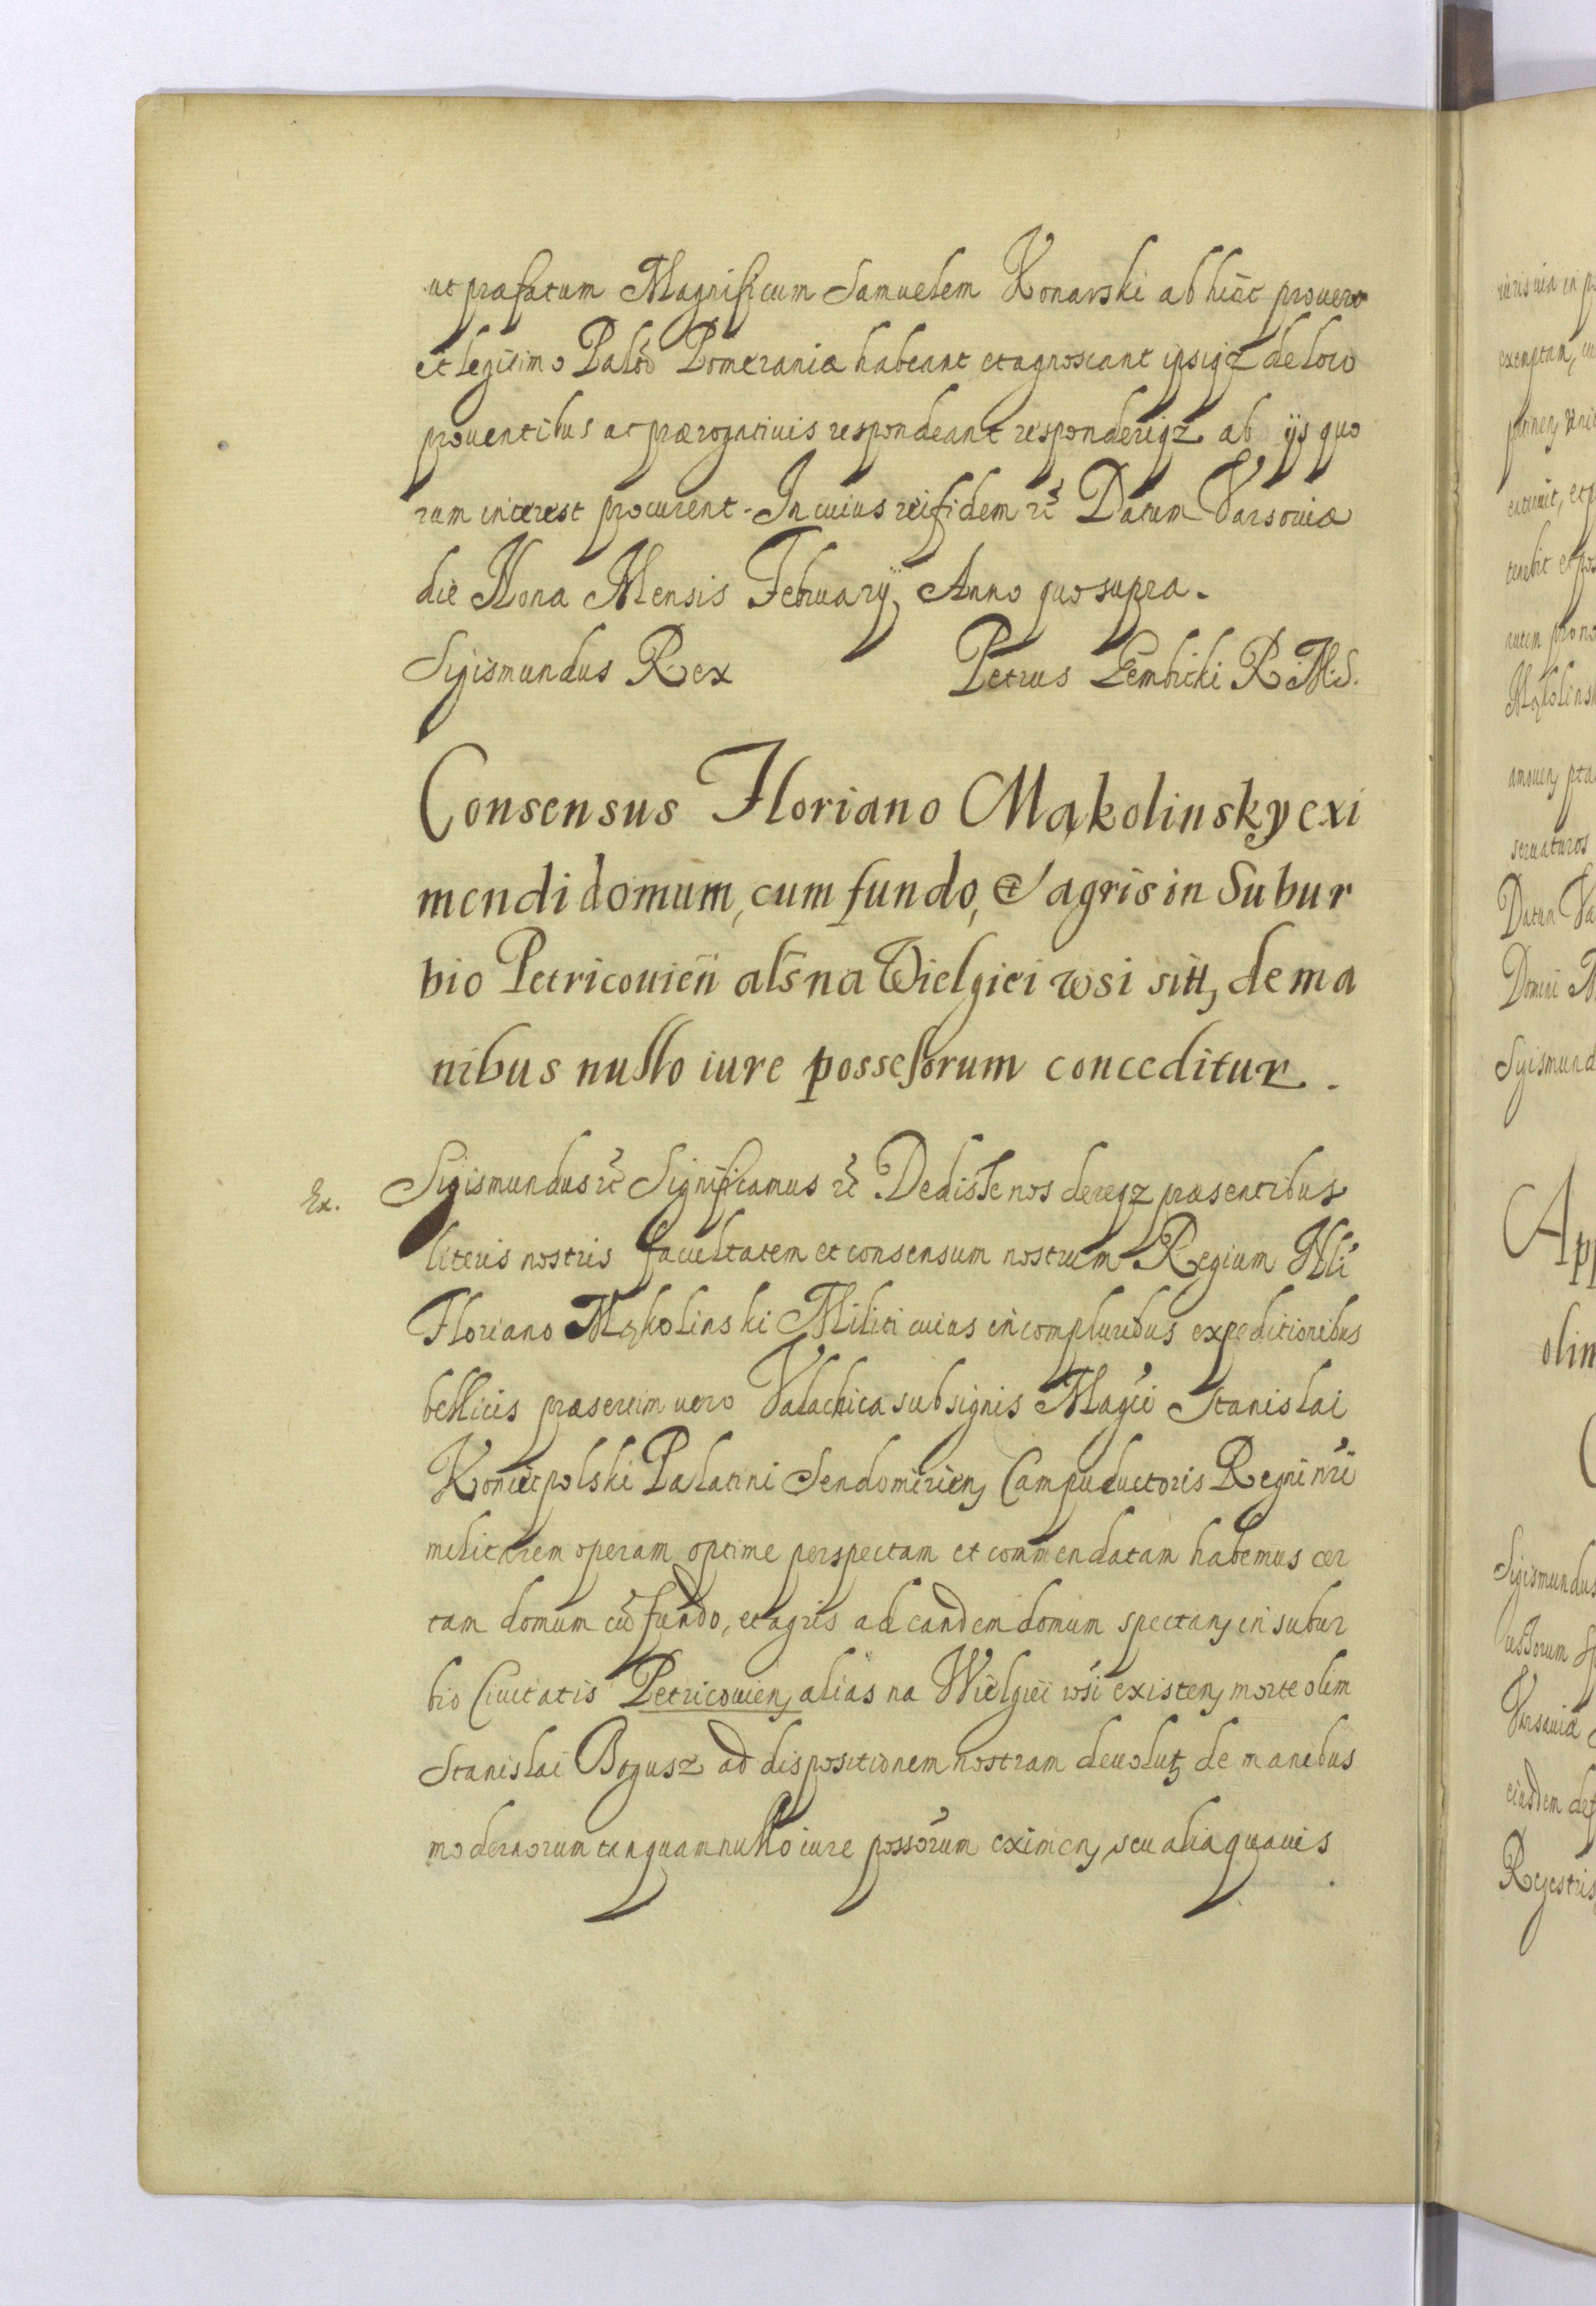 ut præfatum Magnificum Samuelem Konarski ab hinc pro vero
et legitimo Palõ Pomeraniæ habeant et agnoscant ipsiqꝫ de loco
prouentibus ac prærogatiuis respondeant responderiqꝫ ab ijs quo
rum interest procurent. In cuius rei fidem ꝛc̃ Datum Varsouiæ
die Nona Mensis February Anno quo supra.
Sigismundus Rex Petrus Gembicki R. M. S.
Consensus Floriano Mąkolinsky exi
mendi domum, cum fundo, et agris in Subur
bio Petricouieñ als̃ na Wielgiei wsi sitt, de ma
nibus nullo iure possessorum conceditur.
Ex. Sigismundus ꝛc̃ Significamus ꝛc̃ Dedisse nos dereqꝫ præsentibus
literis nostris facultatem et consensum nostrum Regium Nli
Floriano Mąkolinski Militi cuius in compluribus expeditionibus
bellicis præsertim vero Valachica sub signis Magci Stanislai
Koniecpolski Palatini Sendomirien, Campiductoris Regni nri
militarem operam optime perspectam et commendatam habemus cer
tam domum cũ fundo, et agris ad eandem domum spectan, in subur
bio Ciuitatis Petricouien, alias na Wielgiei wsi existen, morte olim
Stanislai Bogusz ad dispositionem nostram deuolut, de manibus
modernorum tanquam nullo iure possorum eximen, seu alia quauis